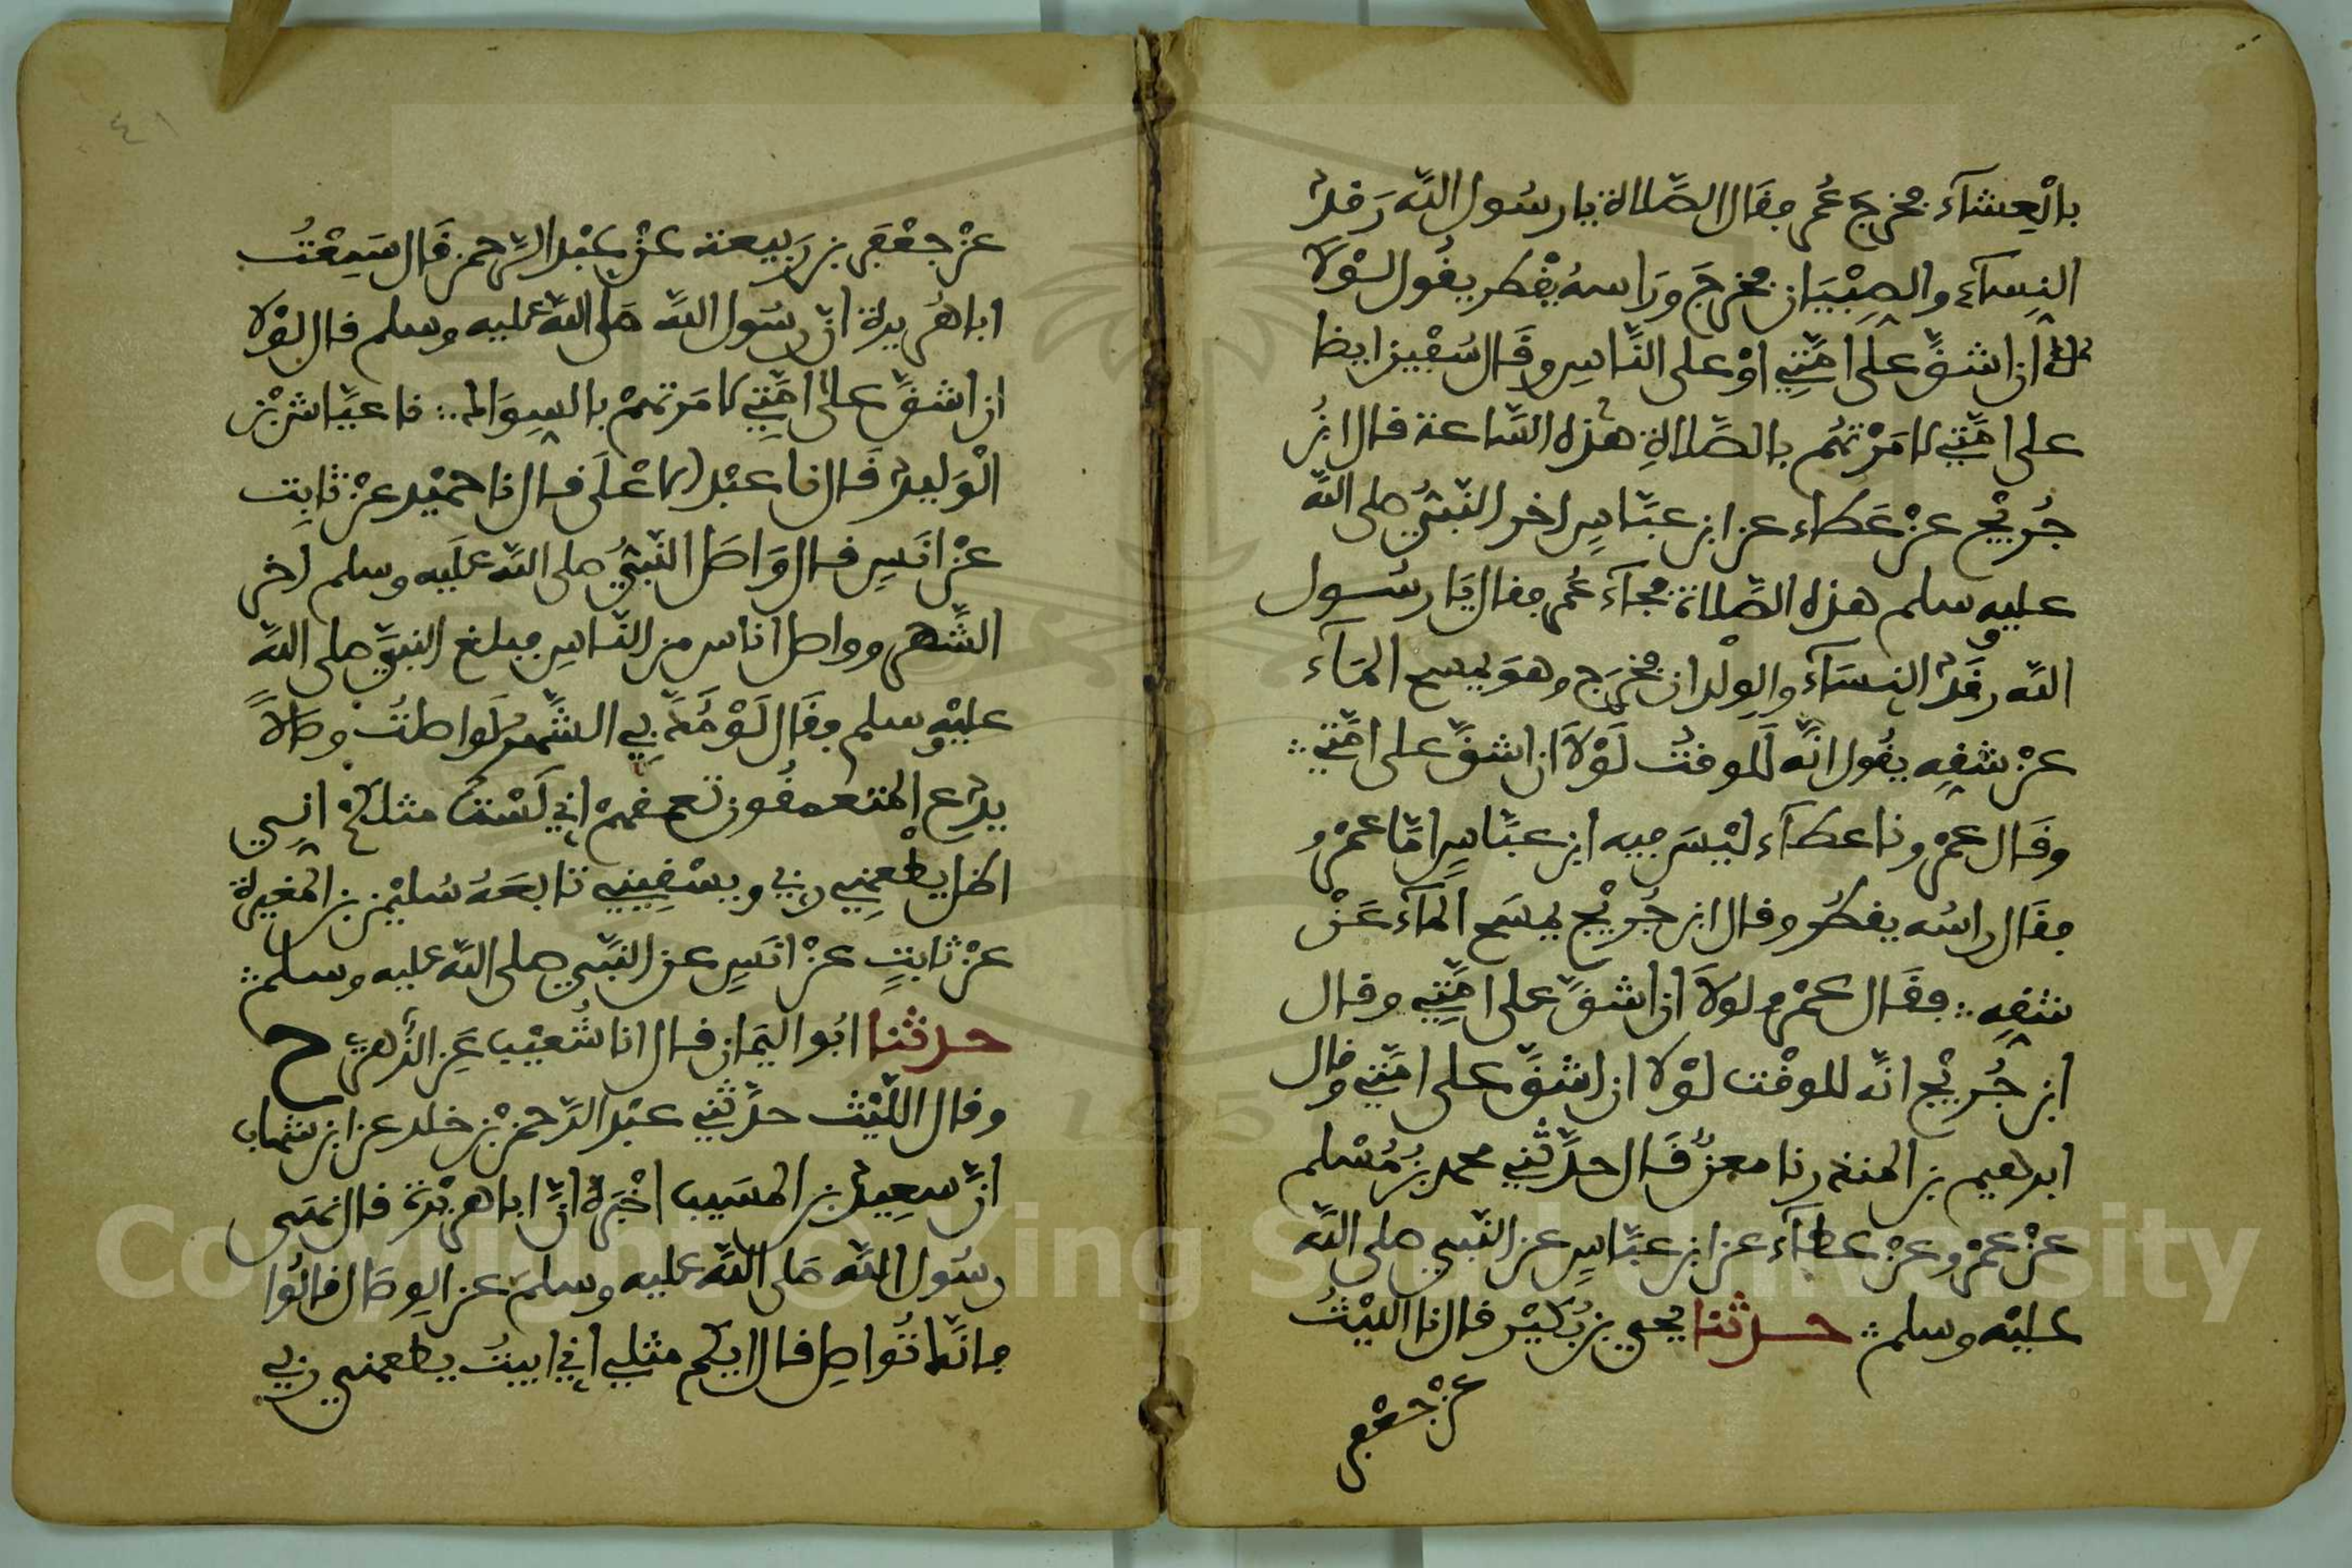 بالْعِشآء فخرجَ عُمر فقَال الصَّلاة يا رسُول اللّه رَقدَ
النِسآء والصِبْيَان فخرجَ ورَاسهُ يقْطر يقُول لوْلا
ان اشقَّ على امَّتِي اوْ على النَّاسِ وقَال سُفْين ايضا
على امَّتي لامَرْتهُم بالصَّلاةِ هذه السَّاعة قال ابنُ
جُريْج عنْ عَطاء عن ابن عبَّاسٍ اخر النّبيُّ صلى اللّه
عليه وسلم هذه الصَّلاة فجآءَ عُمر فقال يَا رسُول
اللّه رقَدَ النِسَآءُ والوِلْدان فخرَج وهوَ يمسح المَآء
عنْ شقِه يقُول انَّه لَلْوقتُ لَوْلاَ ان اشقَّ على امَّتي
وقَال عمْرو نا عطآء ليْسَ فيه ابن عبَّاسٍ امَّا عمْرو
فقَال راسُه يقطُر وقال ابن جُريْج يمسَح المآء عَنْ
شقِهِ فقَال عمْرو لولاَ ان اشقَّ على امَّتِي وقال
ابن جُريْج انَّه للوقْت لوْلا ان اشقَّ على امَّتي وقال
ابرهيم بن المنذر نا معنٌ قَال حدَّثنِي محمد بنُ مُسْلم
عنْ عمْرو عنْ عطآء عن ابن عبَّاسٍ عن النّبي صلى اللّه
عليْه وسلم حدثنا يحيى بن بُكيْر قال نا الليْثُ
عنْ جعْفر
٤١
عنْ جعْفَر بن رَبيعة عنْ عبْد الرَّحمن قَال سَمِعْتُ
ابا هُريرة انّ رسُول اللَّه صَلى اللّه عليه وسلم قال لوْلا
ان اشقَّ على امَّتِي لامَرتهمْ بالسِوَاك نا عيَّاش بْن
الْوَليد قَال نا عبْد الاعْلَى قال نا حميْد عنْ ثابِت
عنْ انَسٍ قال وَاصَل النّبيُّ صلى اللَّه علَيه وسلم اخر
الشَّهر وواصل اناس من النّاسِ فبلغ النبيَّ صلى اللّه
عليْه وسلم فقَال لَوْ مُدَّ بِي الشَّهر لَواصلتُ وصَالاً
يدَع المتعمقُون تعمقهمْ اني لَسْتُ مثلكمْ انِي
اظل يطْعمنِي ربي ويسْقِيني تابعَهُ سُليْمن بن المغيرة
عنْ ثابتٍ عنْ انَسٍ عن النّبَي صلى اللّه عليه وسلم
حدثنا ابُو اليَمان قال انا شُعيْب عَنِ الزُّهري ح
وقال اللّيْث حدَّثني عبْد الرَّحمن بْن خلد عن ابن شهاب
انَّ سعِيد بن المسَيب اخْبَرهُ انَّ ابا هريْرة قال نهَى
رسُول اللَّه صَلى اللَّه عليه وسلمَ عن الوِصَال قالُوا
فانَّك تُواصِل قال ايكم مثلي اني ابيتُ يطعمني ربي